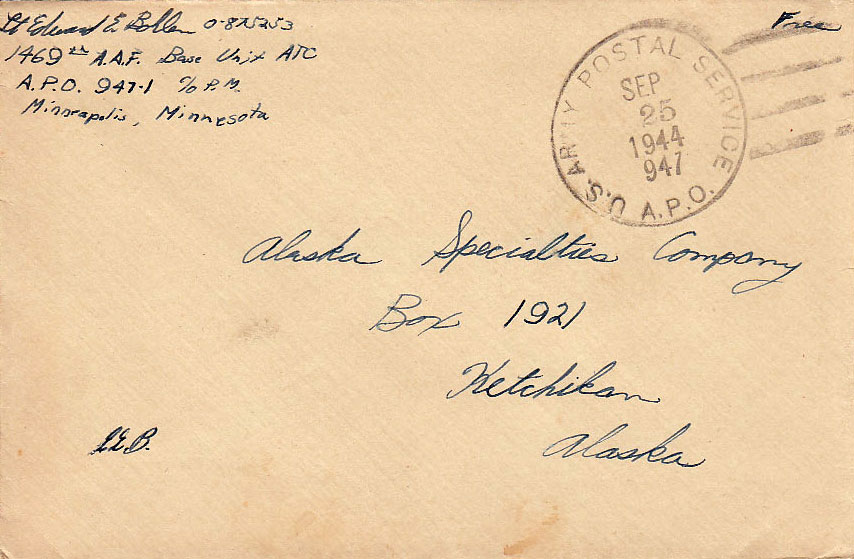 Lt Edward E Bollen O-875253
1469th A.A.F. Base Unit ATC
A.P.O. 947-1 c/o P.M.
Minneapolis, Minnesota
Free
U.S. ARMY POSTAL SERVICE
SEP
25
1944
947
A.P.O.
Alaska Specialties Company
Box 1921
Ketchikan
Alaska
E.E.B.